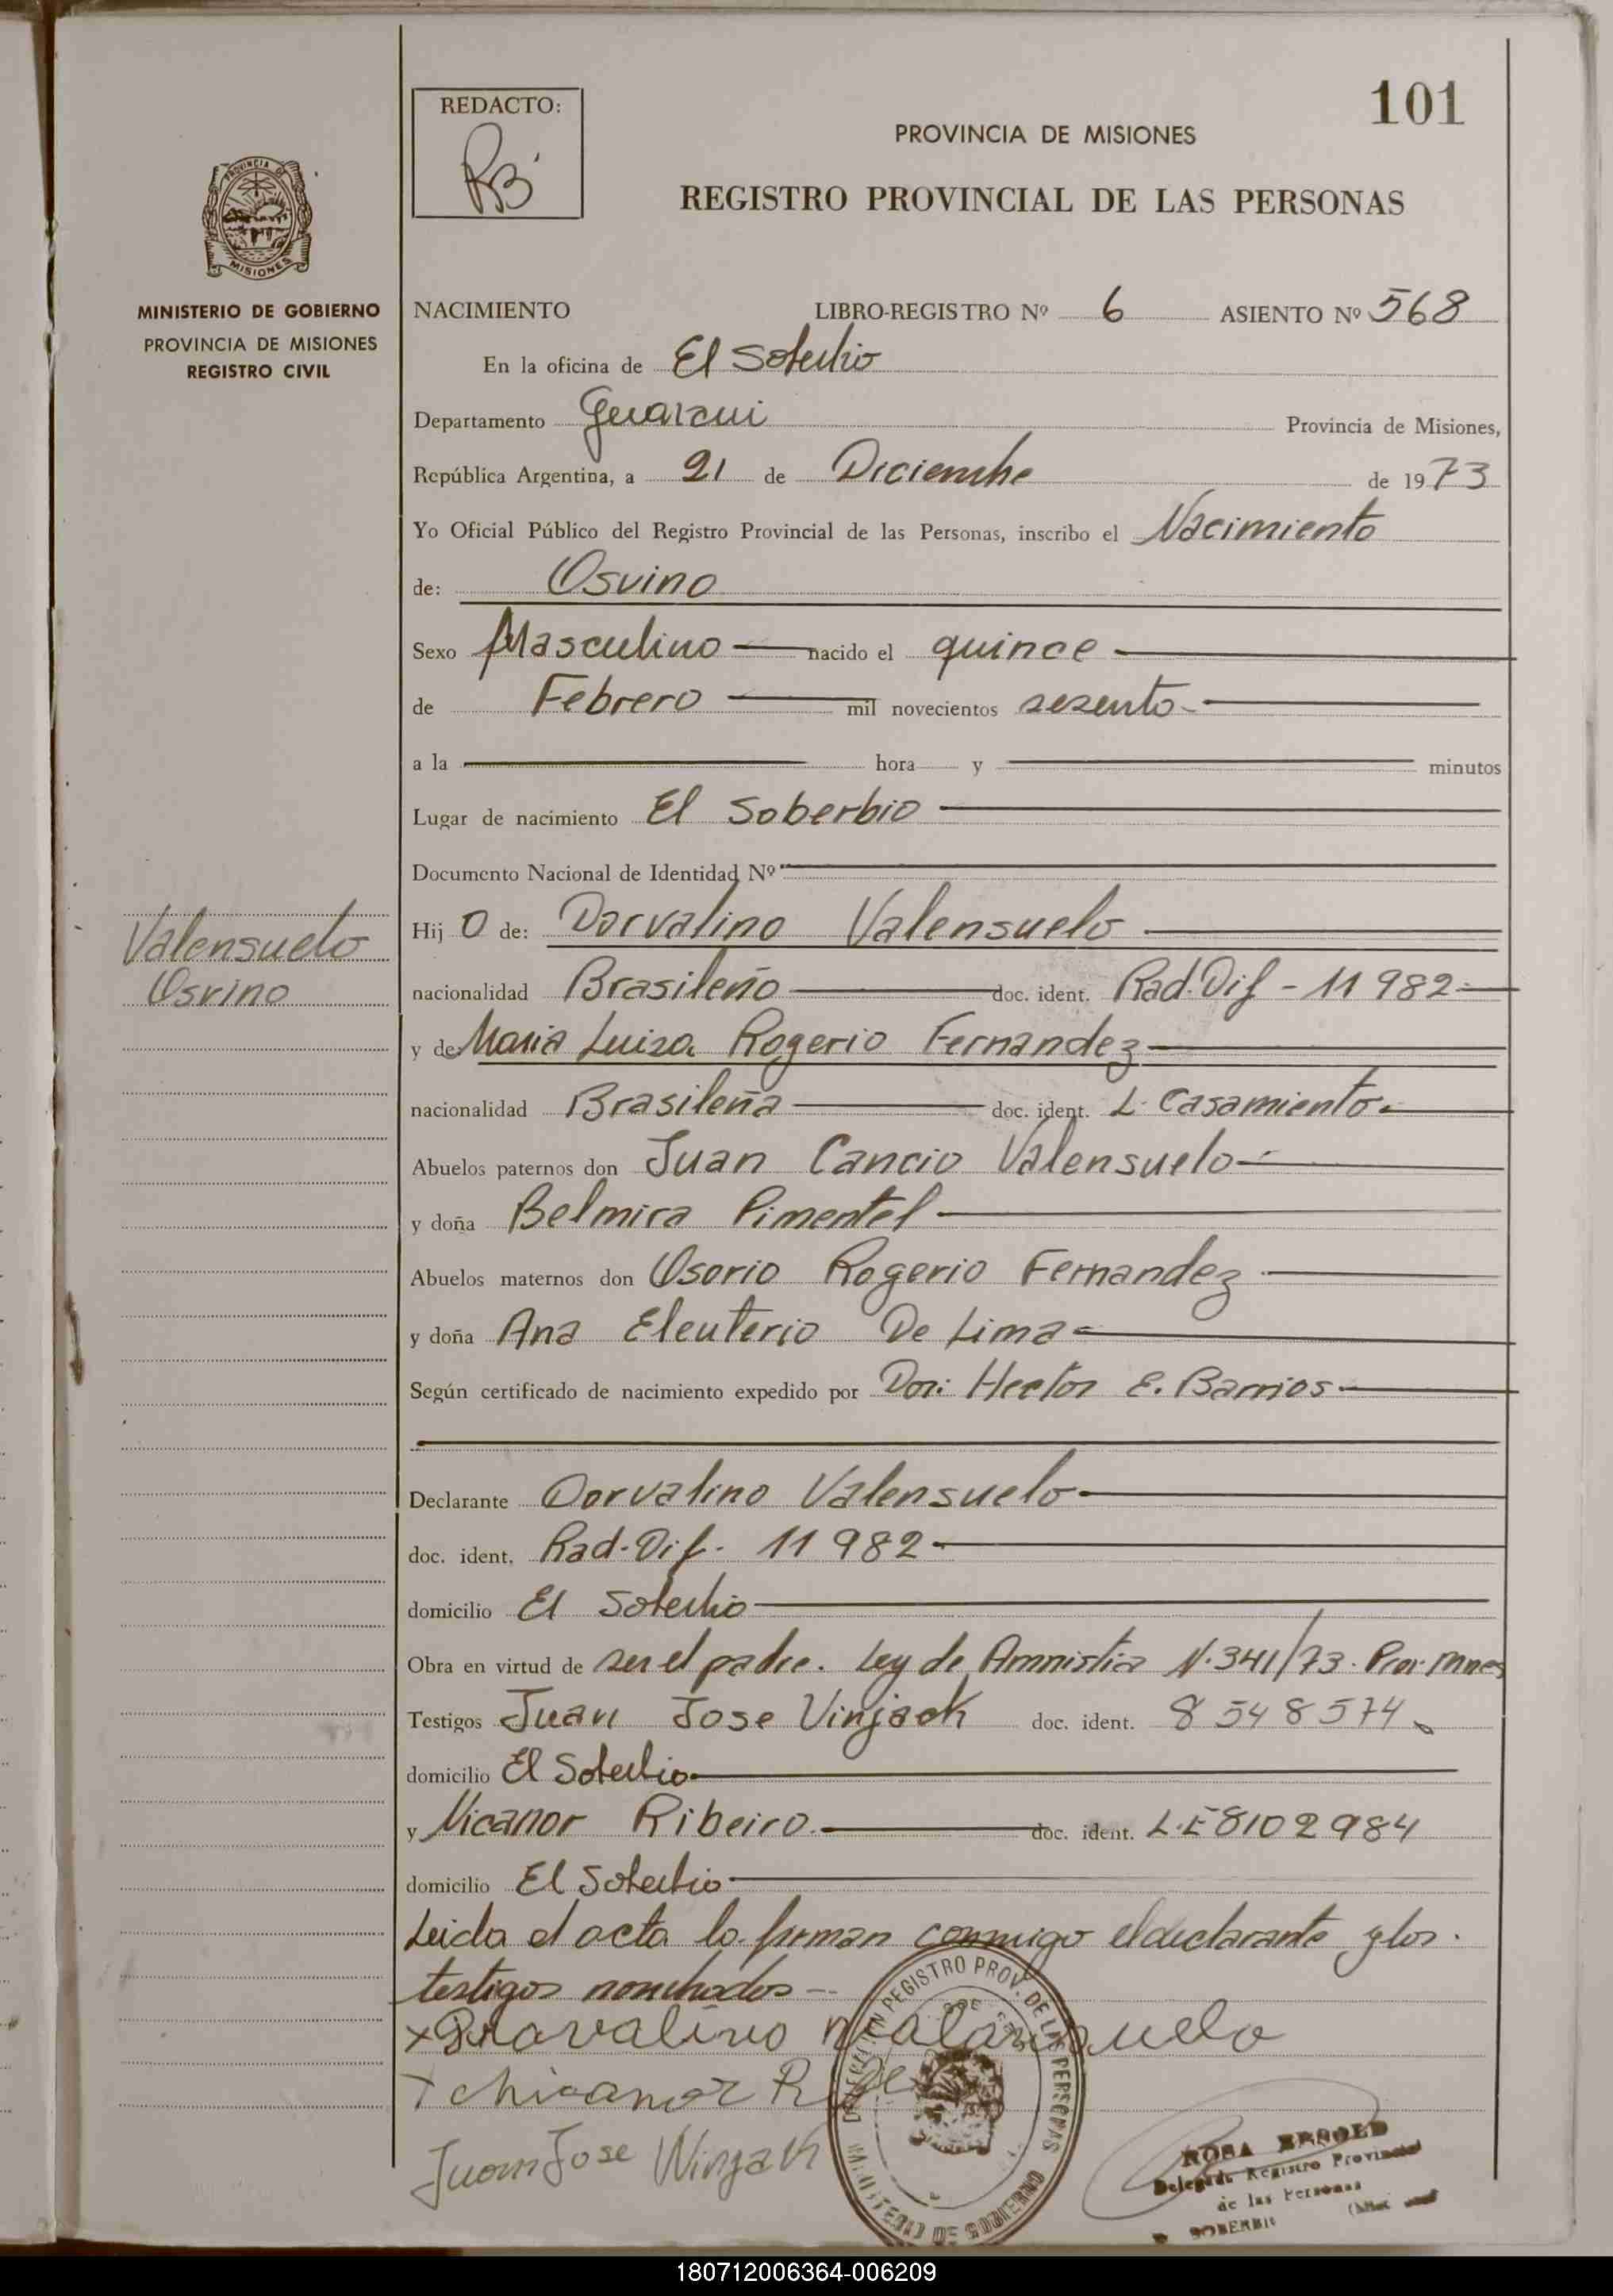 101
REDACTO:
RB
PROVINCIA DE MISIONES
REGISTRO PROVINCIAL DE LAS PERSONAS
PROVINCIA DE
MISIONES
MINISTERIO DE GOBIERNO
PROVINCIA DE MISIONES
REGISTRO CIVIL
NACIMIENTO LIBRO-REGISTRO Nº 6 ASIENTO Nº 568
En la oficina de El Soberbio
Departamento Guarani Provincia de Misiones,
República Argentina, a 21 de Diciembre de 1973
Yo Oficial Público del Registro Provincial de las Personas, inscribo el Nacimiento
de: Osvino
Sexo Masculino nacido el quince
de Febrero mil novecientos sesenta
a la hora y minutos
Lugar de nacimiento El Soberbio
Documento Nacional de Identidad Nº
Valensuelo
Osvino
Hij o de: Dorvalino Valensuelo
nacionalidad Brasileño doc. ident. Rad. Dif - 11 982
y de Maria Luiza Rogerio Fernandez
nacionalidad Brasileña doc. ident. L. Casamiento
Abuelos paternos don Juan Cancio Valensuelo
y doña Belmira Pimentel
Abuelos maternos don Osorio Rogerio Fernandez
y doña Ana Eleuterio De Lima
Según certificado de nacimiento expedido por Don: Hector E. Barrios
Declarante Dorvalino Valensuelo
doc. ident. Rad. Dif. 11 982
domicilio El Soberbio
Obra en virtud de ser el padre. Ley de Amnistia N. 341/73. Prov. Mnes
Testigos Juan Jose Vinjack doc. ident. 8 548 574
domicilio El Soberbio
y Nicanor Ribeiro doc. ident. L.E 8102984
domicilio El Soberbio
Leida el acta la firman conmigo el declarante y los
testigos nombrados
Juan Jose Winjack
DIRECCION REGISTRO PROV. DE LAS PERSONAS
MINISTERIO DE GOBIERNO
ROSA
Delegada Registro Provincial
de las Personas
SOBERBIO
180712006364-006209